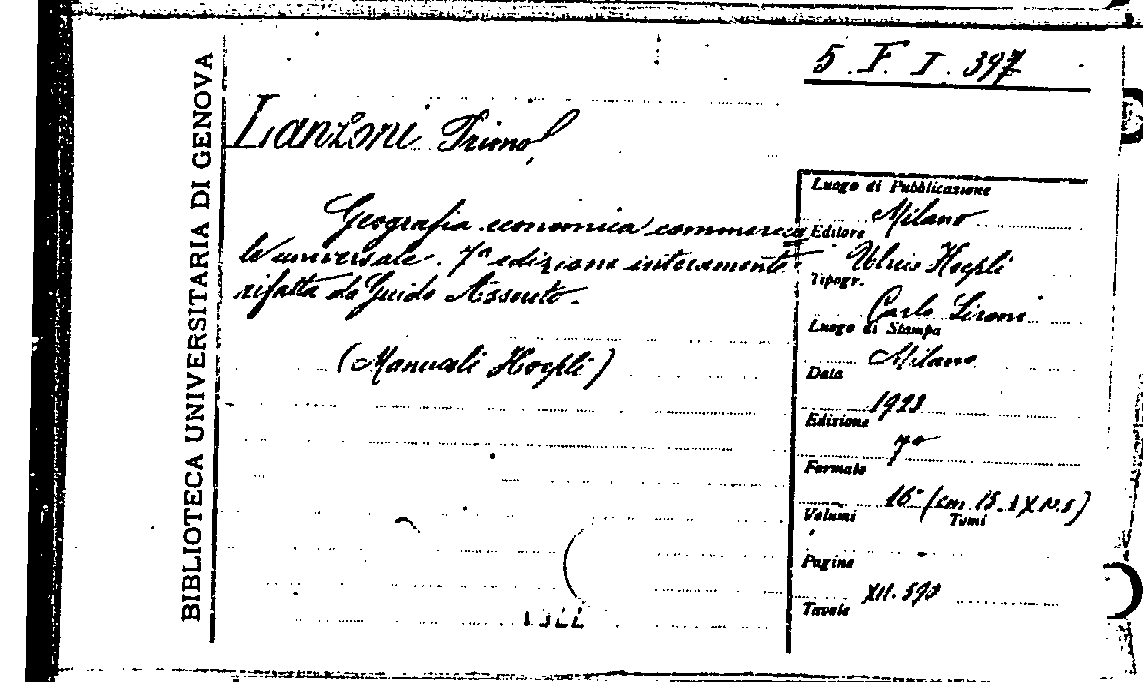 BIBLIOTECA UNIVERSITARIA DI GENOVA
5. F. I. 397
Lanzoni Primo,
Geografia economica commercia
le universale. 7ª edizione interamente
rifatta da Guido Assereto.
(Manuali Hoepli)
Luogo di Pubblicazione
Milano
Editore
Ulrico Hoepli
Tipogr.
Carlo Sironi
Luogo di Stampa
Milano
Data
1923
Edizione
7ª
Formato
16º (cm. 15.
Volumi Tomi
Pagine
XII. 593
Tavole